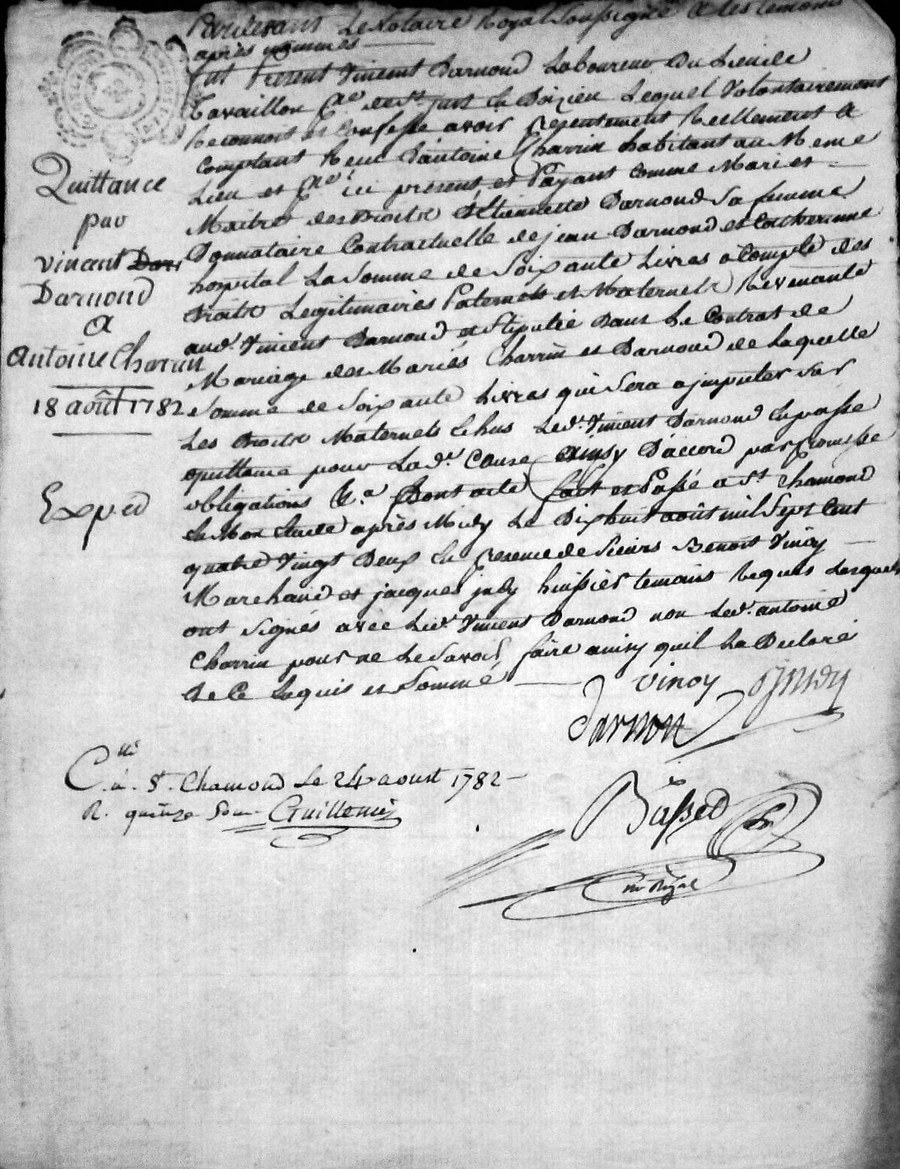 Pardevant Le Notaire Royal Soussigné & les temoins
après nommés
fut Present Vincent Darnoud Laboureur Du Lieu de
Tavaillon Psse de St. just En Doizieu Lequel Volontairement
Reconnoit et Confesse avoir Presentement Reellement &
Comptant Recu D'antoine Charrin habitant au Meme
Lieu et Psse ici present et Payant comme Mari et
Maitre des Droits d'Etiennette Darnoud Sa femme
Donnataire Contractuelle de jean Darnoud et Catherinne
hospital La Somme de Soixante Livres a Compte des
droits Legitimaires Paternels et Maternels Revenants
aud. Vincent Darnoud et Stipulés Dans Le Contrat de
Mariage des Mariés Charrin et Darnoud de Laquelle
Somme de Soixante Livres qui Sera a jmputer Sur
Les Droits Maternels Echus Led. Vincent Darnoud En passe
quittance pour Lad. Cause Ainsy D'accord par Promesse
obligations &a Dont acte fait et Passé a St. Chamond
En Mon Etude après Midy Le Dixhuit août mil Sept Cent
quatre Vingt Deux En Presence de Sieurs Benoit Vinoy
Marchand et jacques judy huissier temoins Requis Lesquels
ont Signés avec Led. Vincent Darnoud non Led. antoine
Charrin pour ne Le Savoir faire ainsy quil La Declaré
De Ce Enquis et Sommé
Vinoy Judy
Darnou
Quittance
par
vincent Dar
Darnoud
A
Antoine Charrin
18 août 1782
Exped
Cllé
à St. Chamond Le 24 aoust 1782
R. quinze Sous Guillemin
Basset
nre Royal